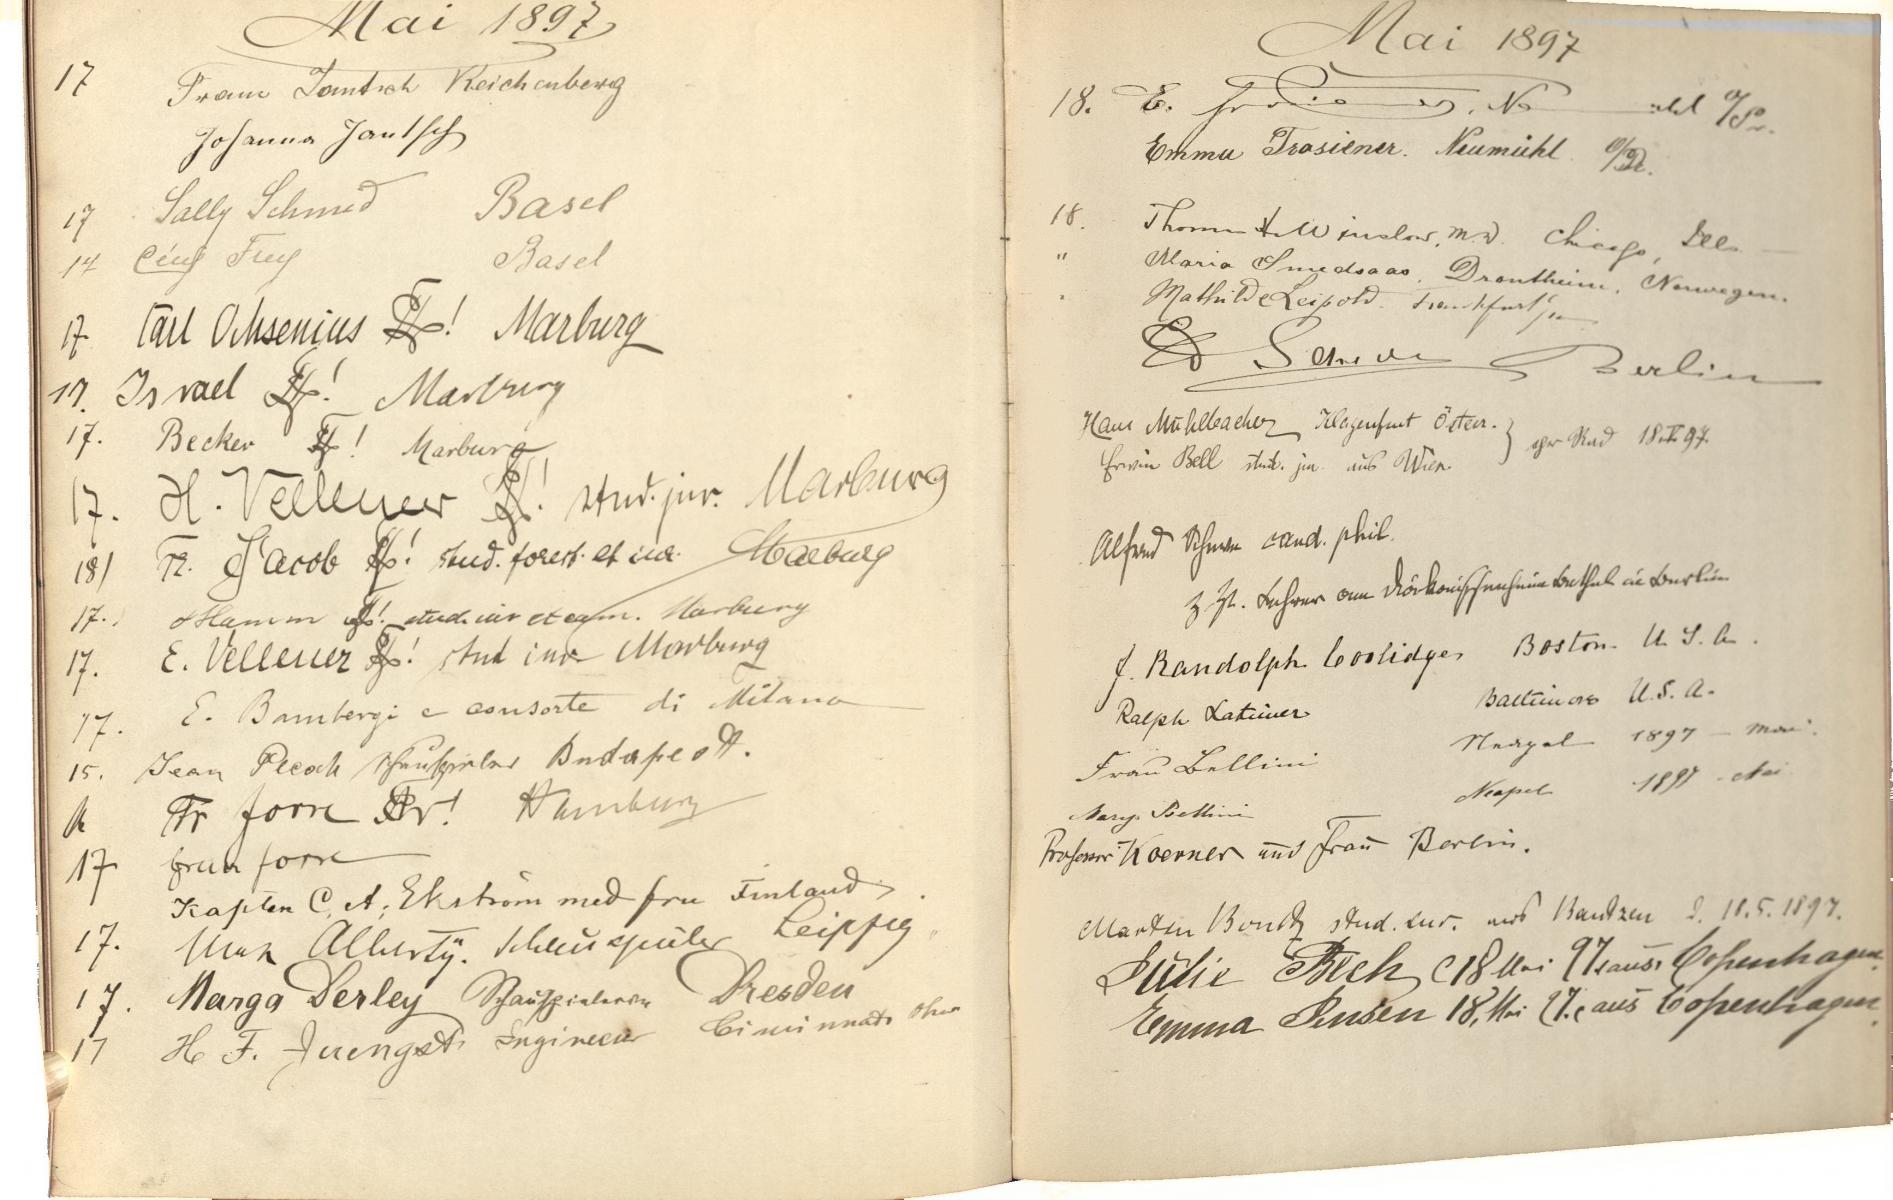 Mai 1897
17 Franz Jantsch Reichenberg
Johanna Jantsch
17 Sally Schmid Basel
14 Frey Basel
17 Carl Ochsenius ! Marburg
17. Israel ! Marburg
17. Becker ! Marburg
17. H. Vellener ! stud. jur. Marburg
18/ Fr. Jacob ! stud. forest. et cam. Marburg
17. Hamm ! stud. iur et cam. Marburg
17. E. Vellener ! stud iur Marburg
17. E. Bambergi e consorte di Milano
15. Jean Schauspieler Budapest.
Fr ! Hamburg
17
Kapten C. A. Ekström med fru Finland
17. Max Alberty. Schauspieler Leipzig
17. Marga Derley Schauspielerin Dresden
17 H F. Juengst Engineer Cincinnati Ohio
Mai 1897
18. E.
Emma Trosiener. Neumühl
18. Thomas Winslow, M.D. Chicago, Ills.
" Maria Smedsaas, Drontheim, Norwegen.
Mathilde Leipold. Frankfurt
Berlin
Hans Mühlbacher Klagenfurt Öster. } per Rad 18.V.97.
Erwin Bell stud. jur. aus Wien.
Alfred cand. phil.
z. Zt. Lehrer am in Berlin
J. Randolph Coolidge Boston. U.S.A.
Ralph Latimer Baltimore U.S.A.
Frau Bellini Neapel 1897 - Mai.
Mary Bellini Neapel 1897 - Mai
Professor Koerner und Frau Berlin.
Marten stud. iur. aus Bautzen d. 18.5.1897.
Julie Bech 18 Mai 97 aus Copenhagen.
Emma Jensen 18. Mai 97. aus Copenhagen.